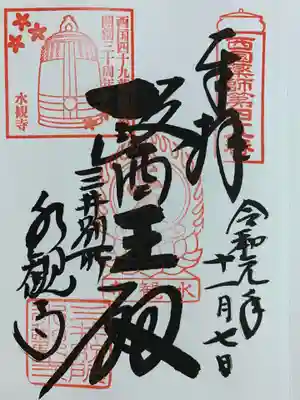 西国薬師第四十八番
奉拝
令和元年
十一月七日
醫王殿
三井別所
水観寺
西国四十九薬師
開創三十周年
水観寺